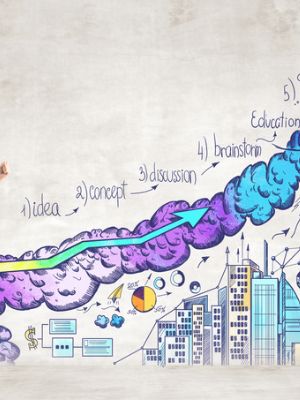 1) idea
2) concept
3) discussion
4) brainstorm
5)
Education
20%
30%
50%
$